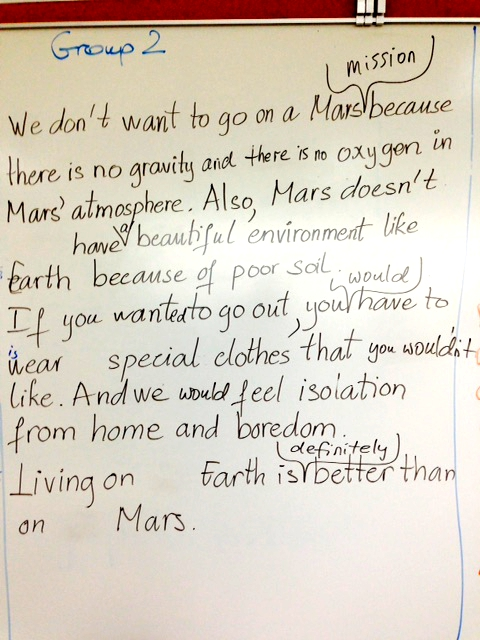 Group 2
mission
We don't want to go on a Mars because
there is no gravity and there is no oxygen in
Mars' atmosphere. Also, Mars doesn't
have a beautiful environment like
Earth because of poor soil.
would
If you wanted to go out, you have to
wear special clothes that you wouldn't
like. And we would feel isolation
from home and boredom.
definitely
Living on Earth is better than
on Mars.